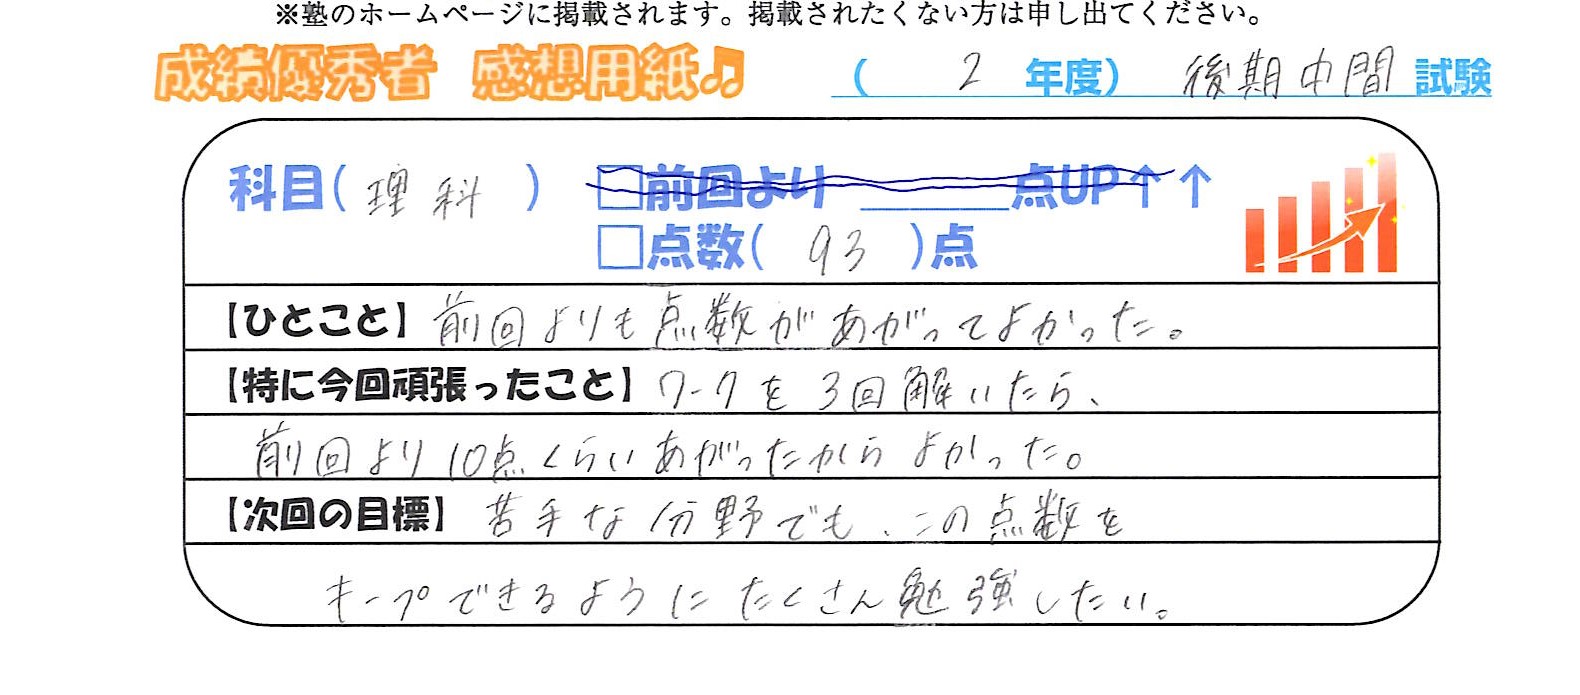 ※塾のホームページに掲載されます。掲載されたくない方は申し出てください。
成績優秀者 感想用紙♫ ( 2 年度) 後期中間 試験
科目( 理科 ) □前回より ______点UP↑↑
□点数( 93 )点
【ひとこと】前回よりも点数があがってよかった。
【特に今回頑張ったこと】ワークを3回解いたら、
前回より10点くらいあがったからよかった。
【次回の目標】苦手な分野でも、この点数を
キープできるようにたくさん勉強したい。